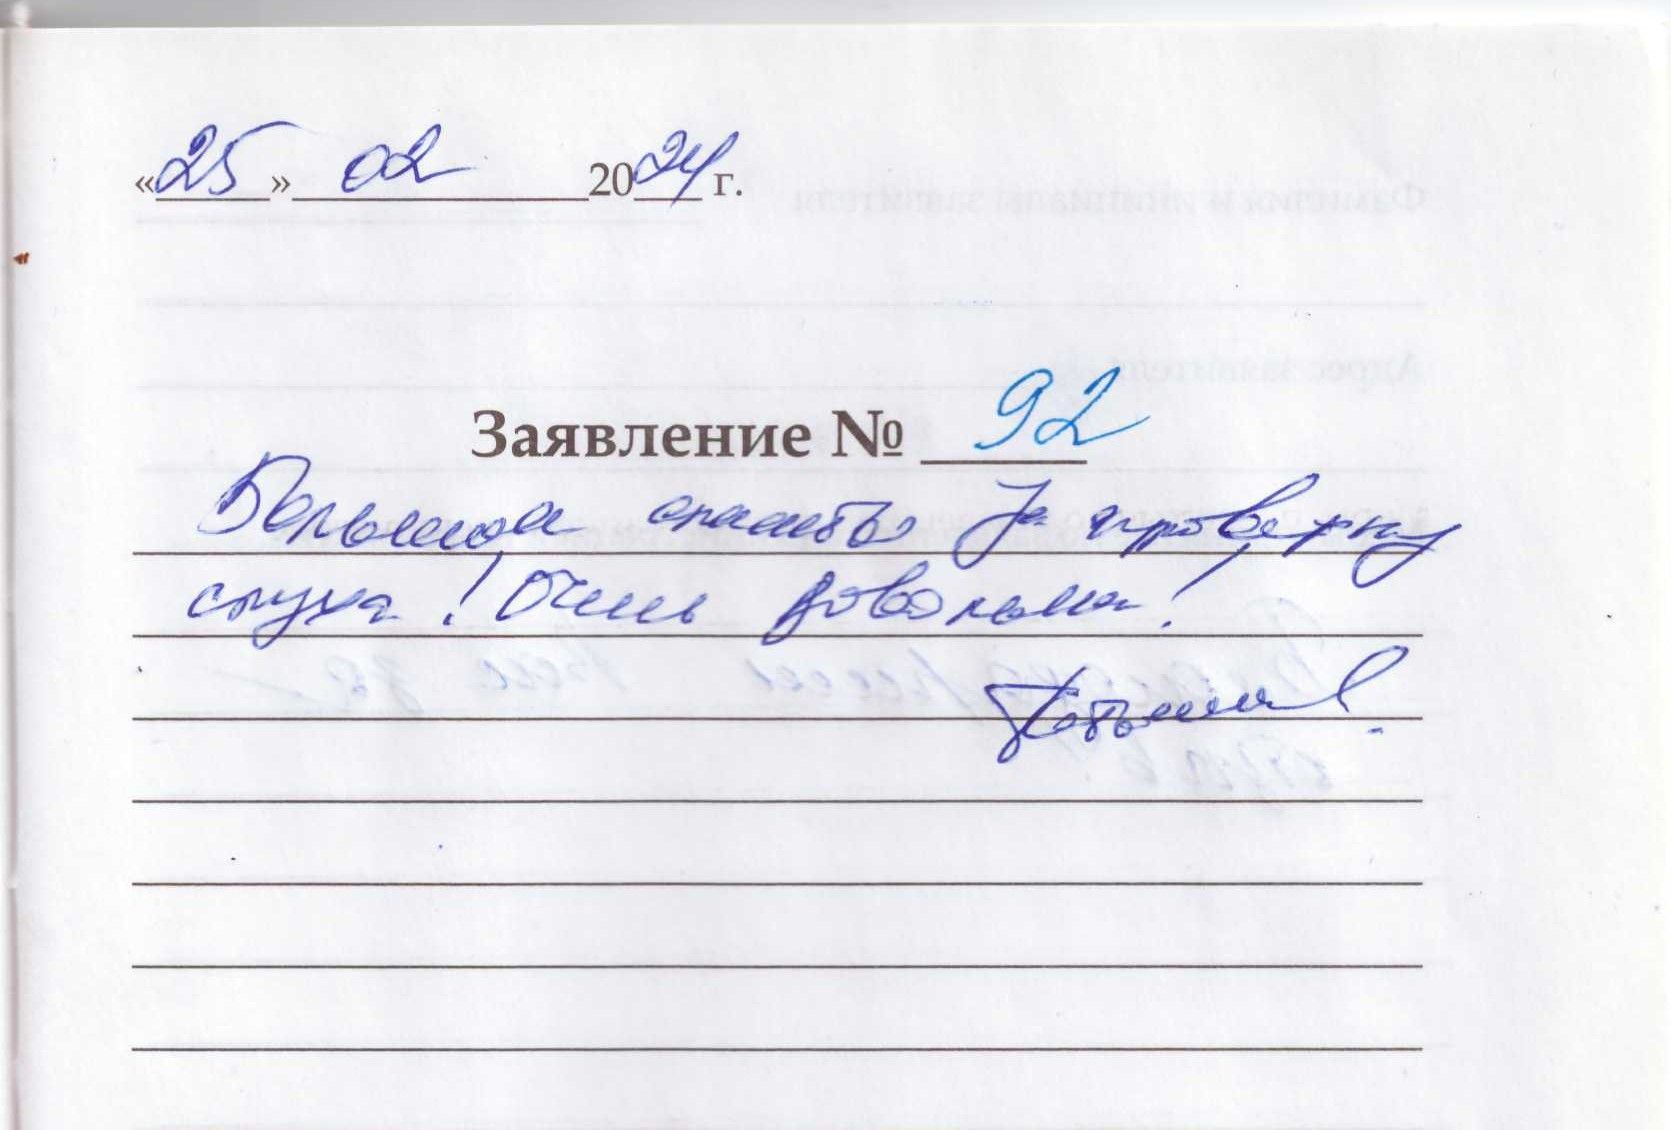 «25» 02 2024 г.
Заявление № 92
Большое спасибо за проверку
слуха! Очень довольна!
Татьяна